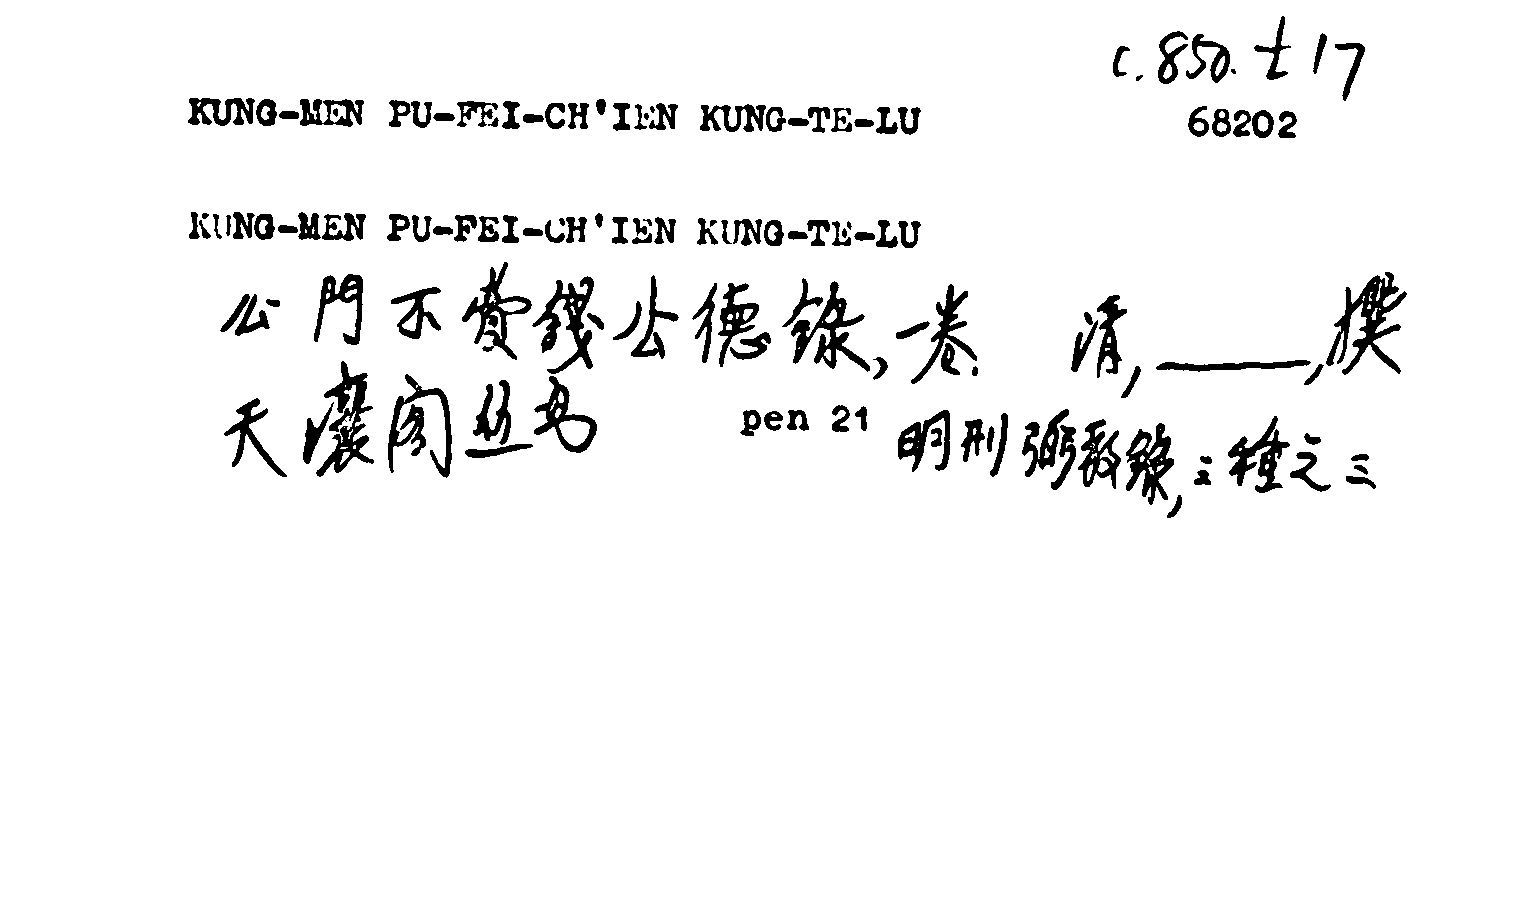 c.850. t 17
KUNG-MEN PU-FEI-CH'IEN KUNG-TE-LU 68202
KUNG-MEN PU-FEI-CH'IEN KUNG-TE-LU
公門不費錢公德錄,一卷. 清,______,撰
天壤閣丛书 pen 21 明刑弼敎錄,三種之三